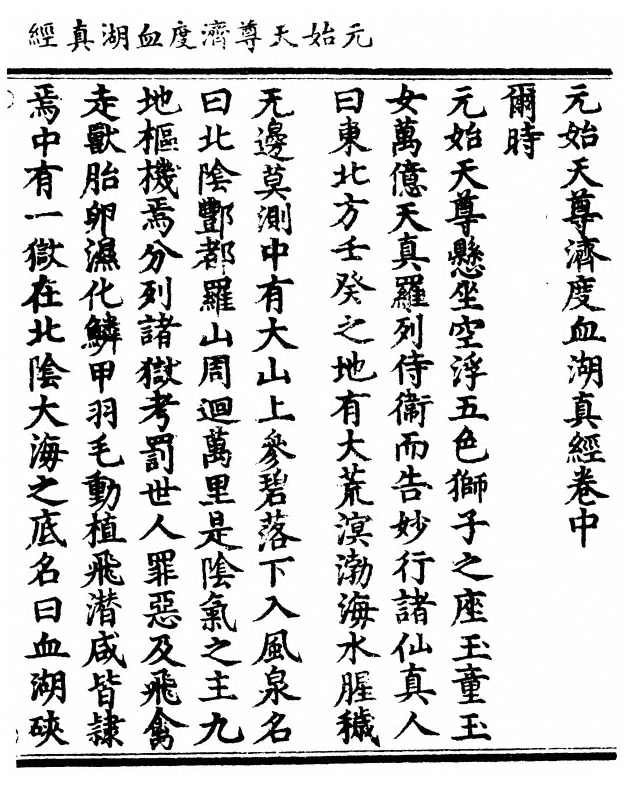 元始天尊濟度血湖真經
元始天尊濟度血湖真經卷中
爾時
元始天尊懸坐空浮五色獅子之座玉童玉
女萬億天真羅列侍衛而告妙行諸仙真人
曰東北方壬癸之地有大荒溟渤海水腥穢
无邊莫測中有大山上參碧落下入風泉名
曰北陰酆都羅山周迴萬里是陰氣之主九
地樞機焉分列諸獄考罰世人罪惡及飛禽
走獸胎卵濕化鱗甲羽毛動植飛潛咸皆隷
焉中有一獄在北陰大海之底名曰血湖硤